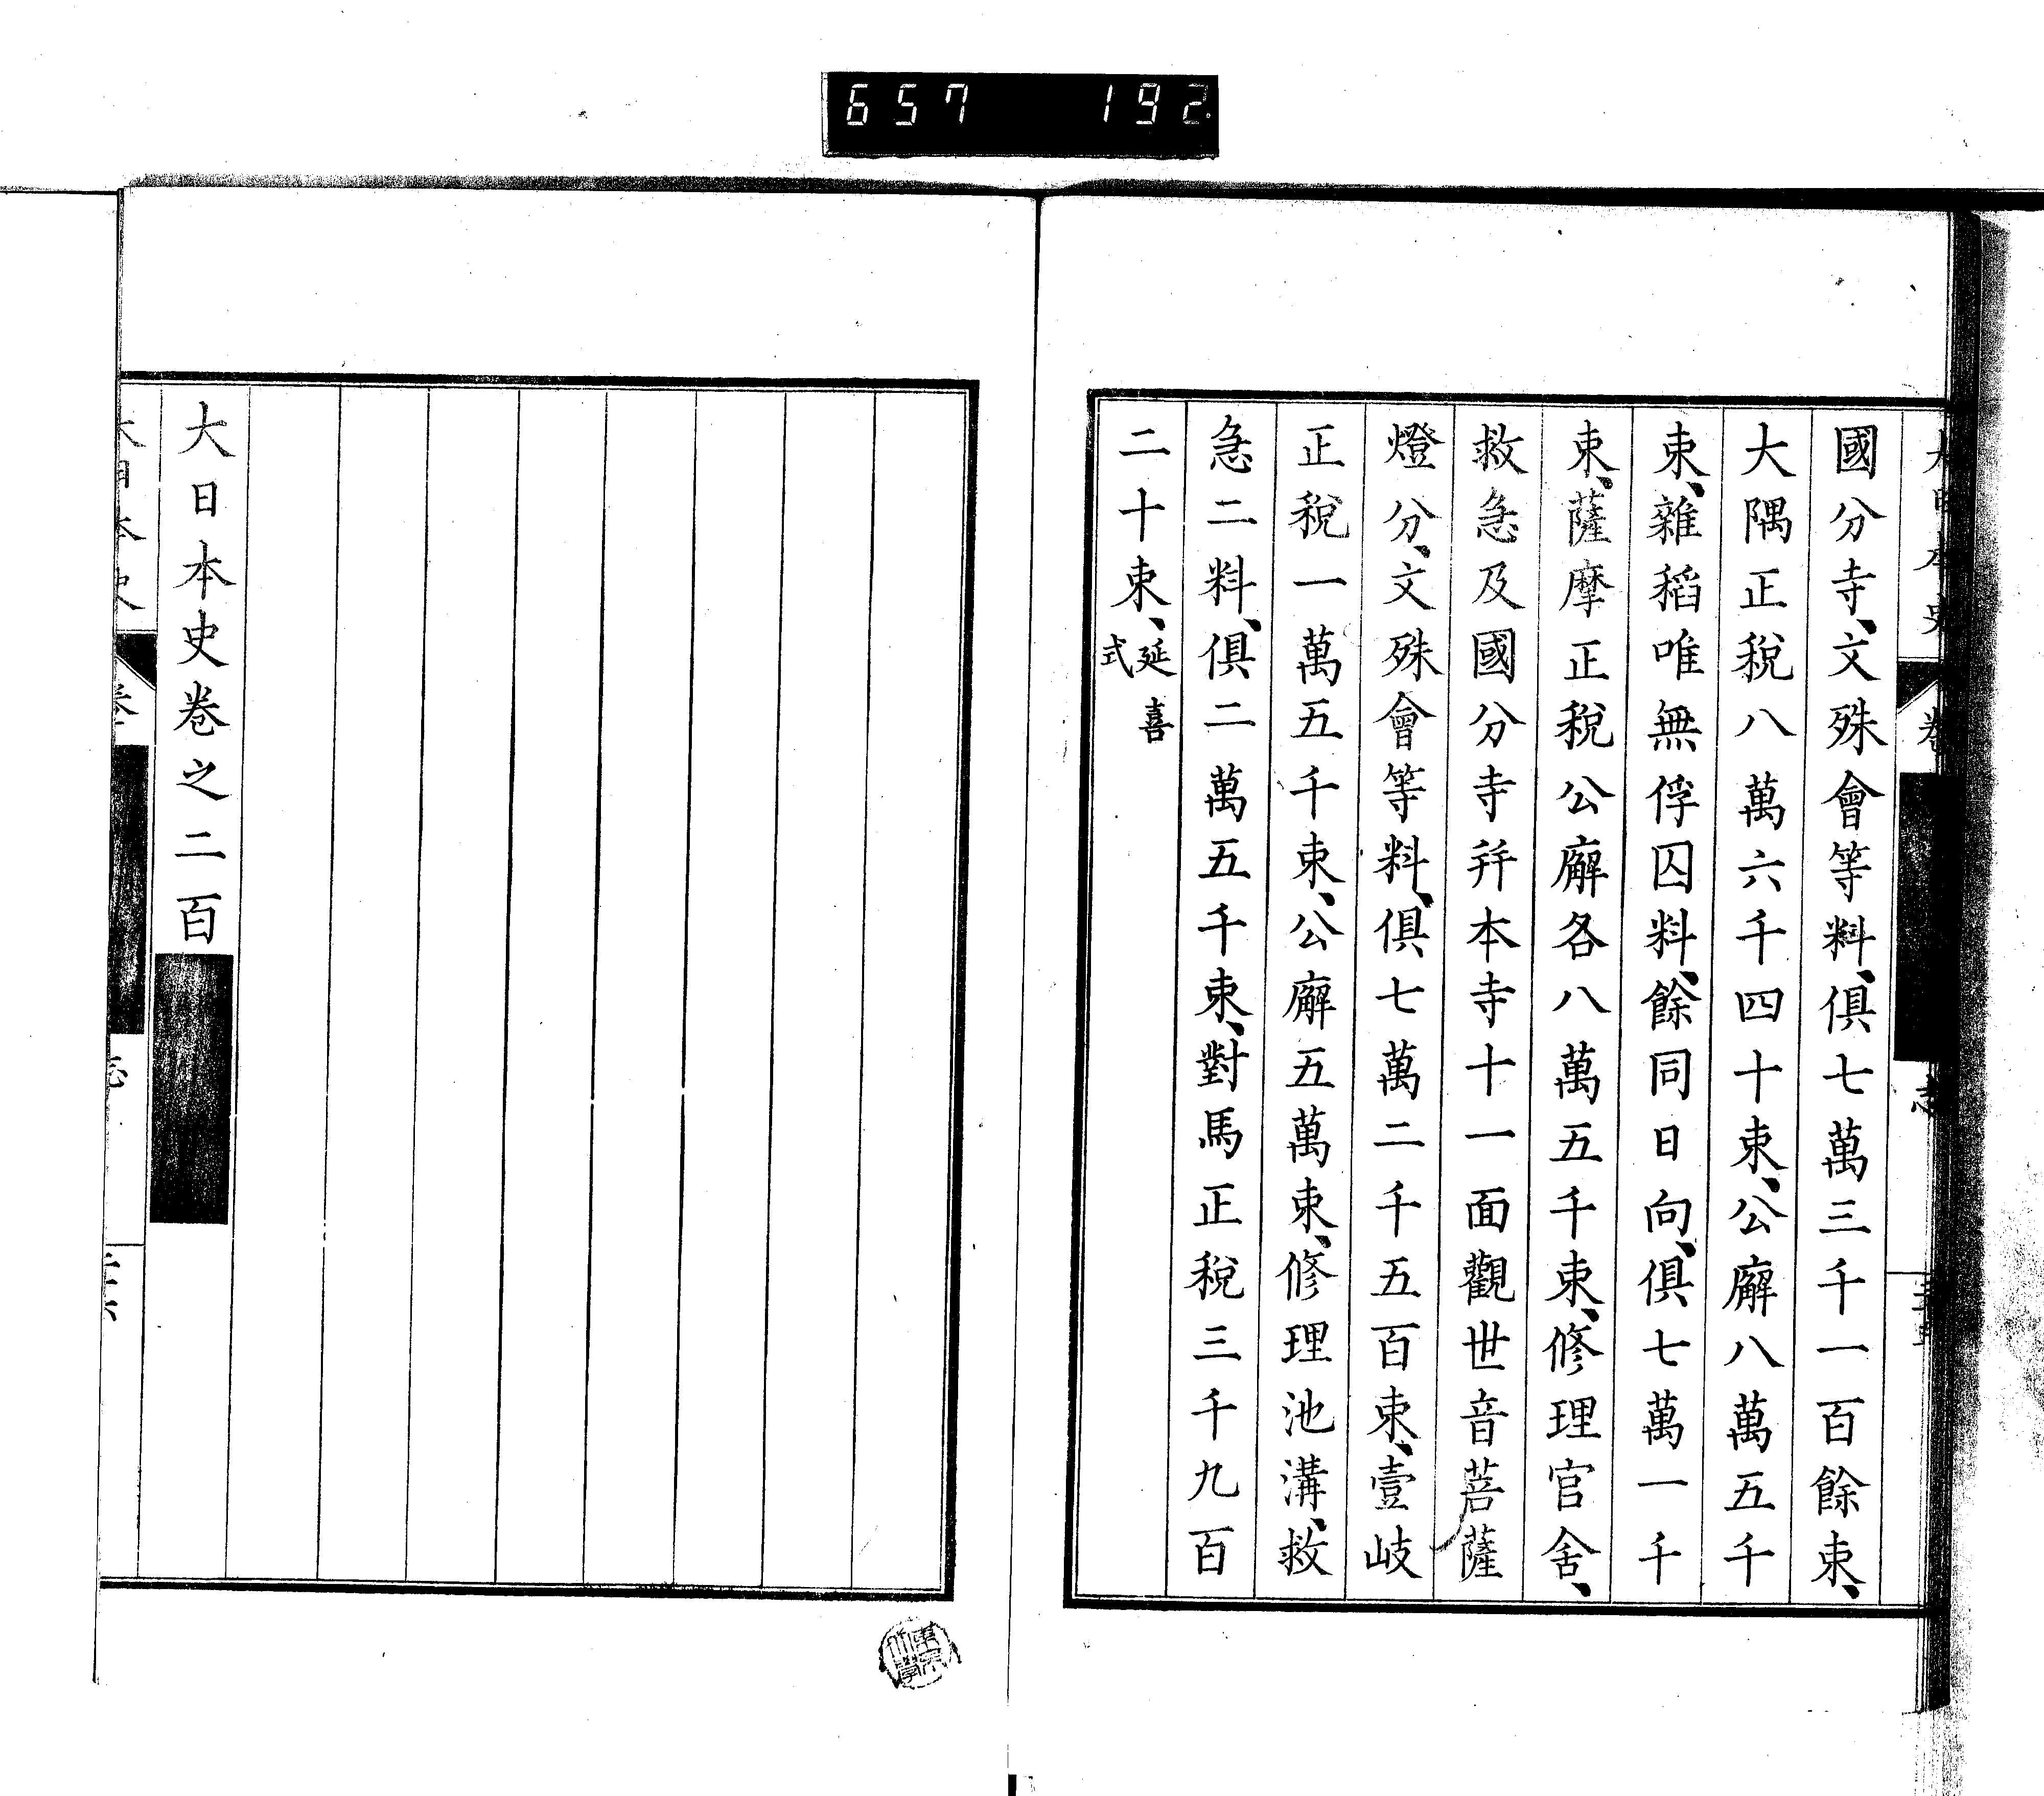 657 192
國分寺、文殊會等料、俱七萬三千一百餘束、
大隅正稅八萬六千四十束、公廨八萬五千
束、雜稻唯無俘囚料、餘同日向、俱七萬一千
束、薩摩正稅公廨各八萬五千束、修理官舍、
救急及國分寺幷本寺十一面觀世音菩薩
燈分、文殊會等料、俱七萬二千五百束、壹岐
正稅一萬五千束、公廨五萬束、修理池溝、救
急二料、俱二萬五千束、對馬正稅三千九百
二十束、延喜式
大日本史卷之二百
大日本史 卷 志